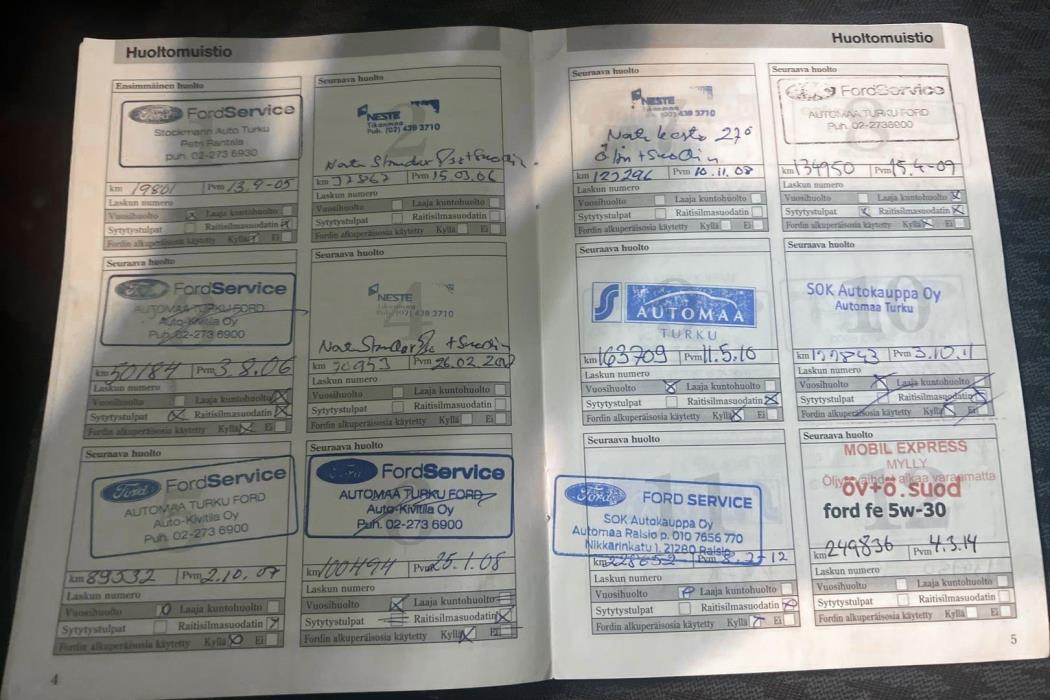 Huoltomuistio
Ensimmäinen huolto
Ford FordService
Stockmann Auto Turku
Petri Rantala
puh. 02-273 6930
km 19861 Pvm 13.9-05
Laskun numero
Vuosihuolto Laaja kuntohuolto
Sytytystulpat Raitisilmasuodatin
Fordin alkuperäisosia käytetty Kyllä Ei
Seuraava huolto
NESTE
Tikanmaa
Puh. (02) 439 3710
km 32862 Pvm 15.03.06
Laskun numero
Vuosihuolto Laaja kuntohuolto
Sytytystulpat Raitisilmasuodatin
Fordin alkuperäisosia käytetty Kyllä Ei
Seuraava huolto
Ford FordService
AUTOMAA TURKU FORD
Auto-Kivitila Oy
Puh. 02-273 6900
km 50184 Pvm 3.8.06
Laskun numero
Vuosihuolto Laaja kuntohuolto
Sytytystulpat Raitisilmasuodatin
Fordin alkuperäisosia käytetty Kyllä Ei
Seuraava huolto
NESTE
km 70953 Pvm 26.02.
Laskun numero
Vuosihuolto Laaja kuntohuolto
Sytytystulpat Raitisilmasuodatin
Fordin alkuperäisosia käytetty Kyllä Ei
Seuraava huolto
Ford FordService
AUTOMAA TURKU FORD
Auto-Kivitila Oy
Puh. 02-273 6900
km 89532 Pvm 2.10.07
Laskun numero
Vuosihuolto Laaja kuntohuolto
Sytytystulpat Raitisilmasuodatin
Fordin alkuperäisosia käytetty Kyllä Ei
Seuraava huolto
Ford FordService
AUTOMAA TURKU FORD
Auto-Kivitila Oy
Puh. 02-273 6900
km 100494 Pvm 25.1.08
Laskun numero
Vuosihuolto Laaja kuntohuolto
Sytytystulpat Raitisilmasuodatin
Fordin alkuperäisosia käytetty Kyllä Ei
4
Huoltomuistio
Seuraava huolto
NESTE
Tikanmaa
(02) 439 3710
km 122296 Pvm 10.11.08
Laskun numero
Vuosihuolto Laaja kuntohuolto
Sytytystulpat Raitisilmasuodatin
Fordin alkuperäisosia käytetty Kyllä Ei
Seuraava huolto
FordService
AUTOMAA TURKU FORD
Puh. 02-2736900
km 134950 Pvm 15.4-09
Laskun numero
Vuosihuolto Laaja kuntohuolto
Sytytystulpat Raitisilmasuodatin
Fordin alkuperäisosia käytetty Kyllä Ei
Seuraava huolto
S AUTOMAA
TURKU
km 163709 Pvm 11.5.10
Laskun numero
Vuosihuolto Laaja kuntohuolto
Sytytystulpat Raitisilmasuodatin
Fordin alkuperäisosia käytetty Kyllä Ei
Seuraava huolto
SOK Autokauppa Oy
Automaa Turku
km Pvm 3.10.11
Laskun numero
Vuosihuolto Laaja kuntohuolto
Sytytystulpat Raitisilmasuodatin
Fordin alkuperäisosia käytetty Kyllä Ei
Seuraava huolto
Ford FORD SERVICE
SOK Autokauppa Oy
Automaa Raisio p. 010 7656 770
Nikkarinkatu 1, 21280 Raisio
km 228652 Pvm 8.2-12
Laskun numero
Vuosihuolto Laaja kuntohuolto
Sytytystulpat Raitisilmasuodatin
Fordin alkuperäisosia käytetty Kyllä Ei
Seuraava huolto
MOBIL EXPRESS
MYLLY
Öljynvaihdot aikaa varaamatta
öv+ö.suod
ford fe 5w-30
km 249836 Pvm 4.3.14
Laskun numero
Vuosihuolto Laaja kuntohuolto
Sytytystulpat Raitisilmasuodatin
Fordin alkuperäisosia käytetty Kyllä Ei
5